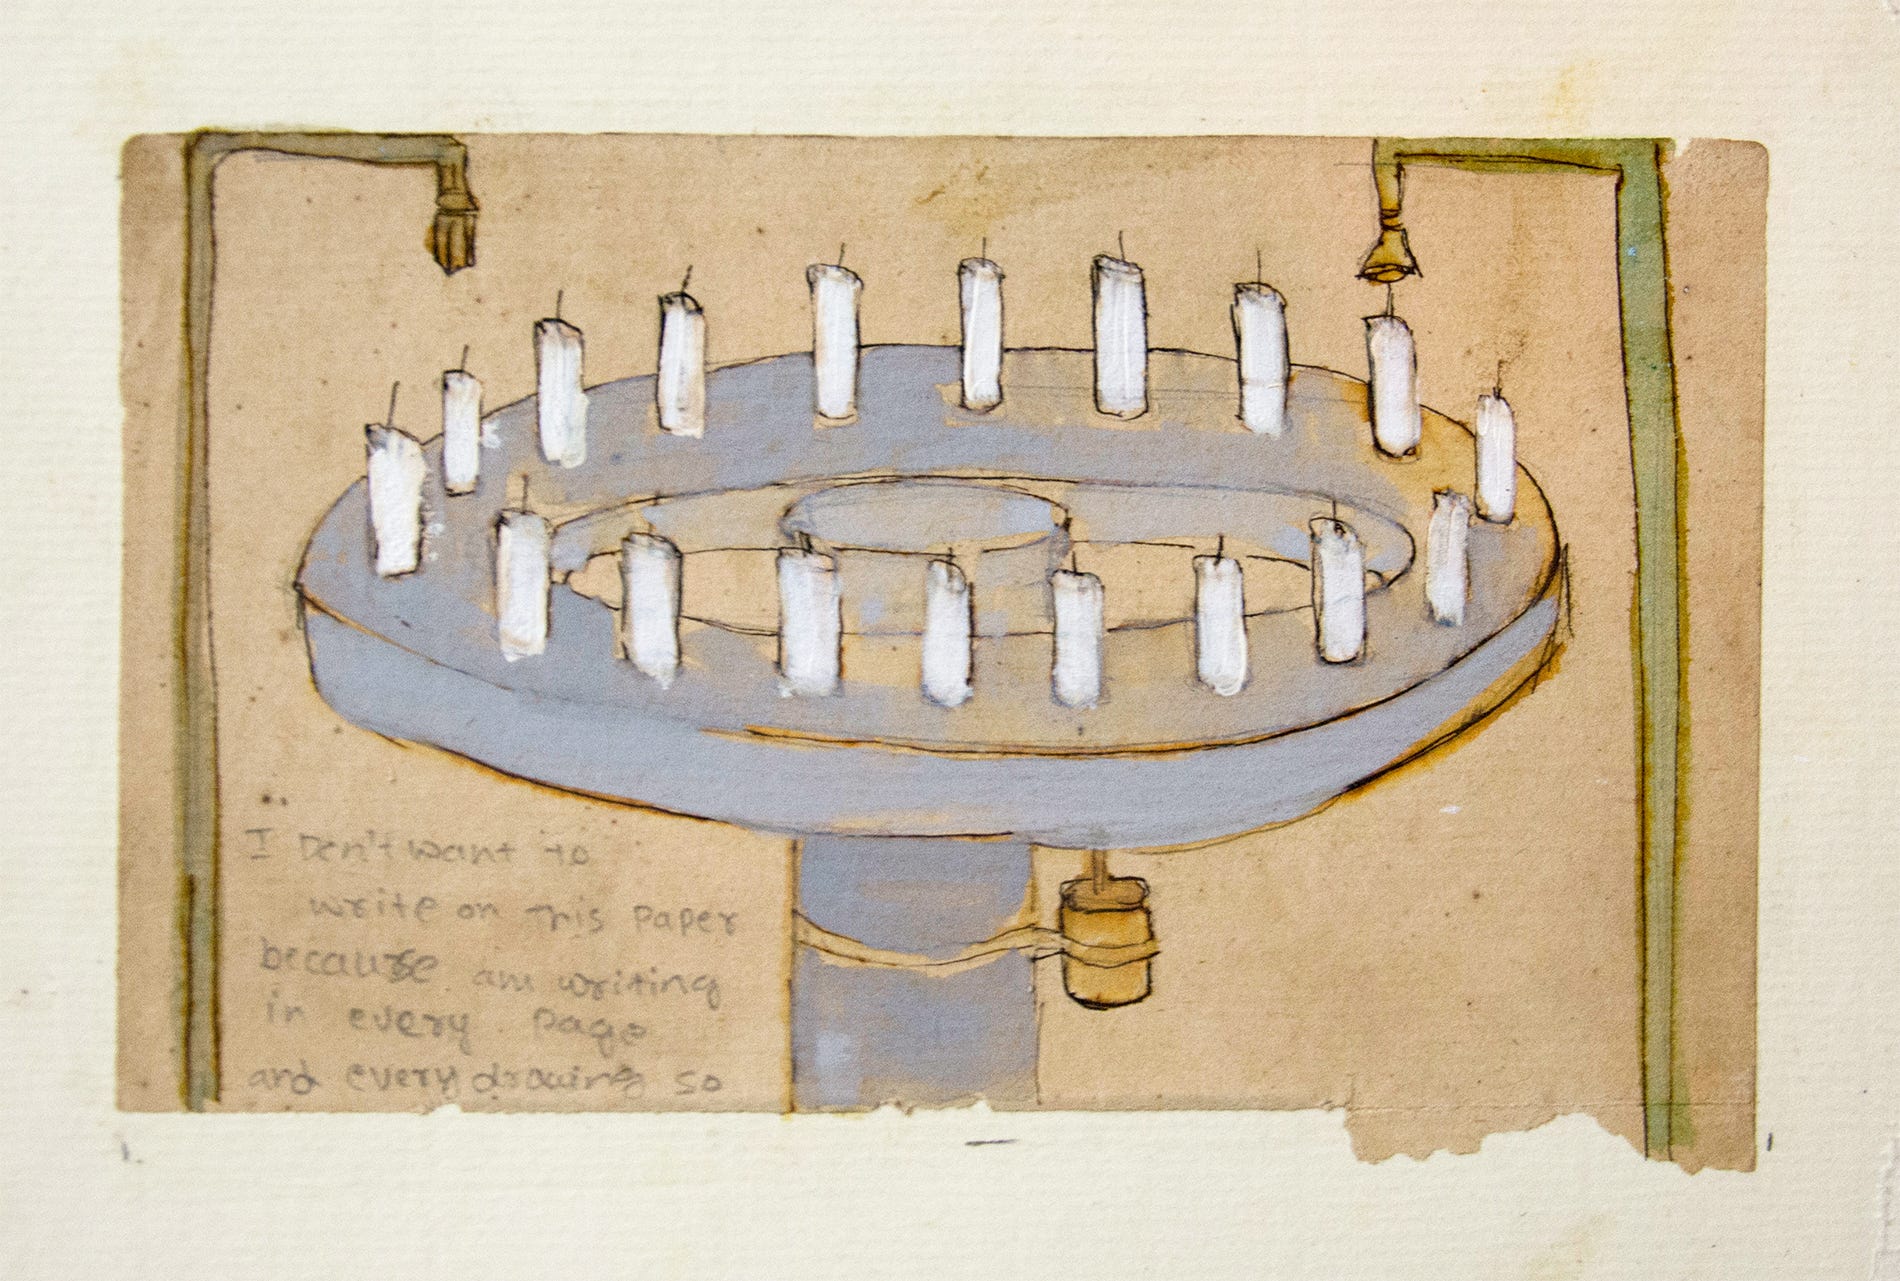 I Don't want to
write on This Paper
because am writing
in every Page
and every drawing so